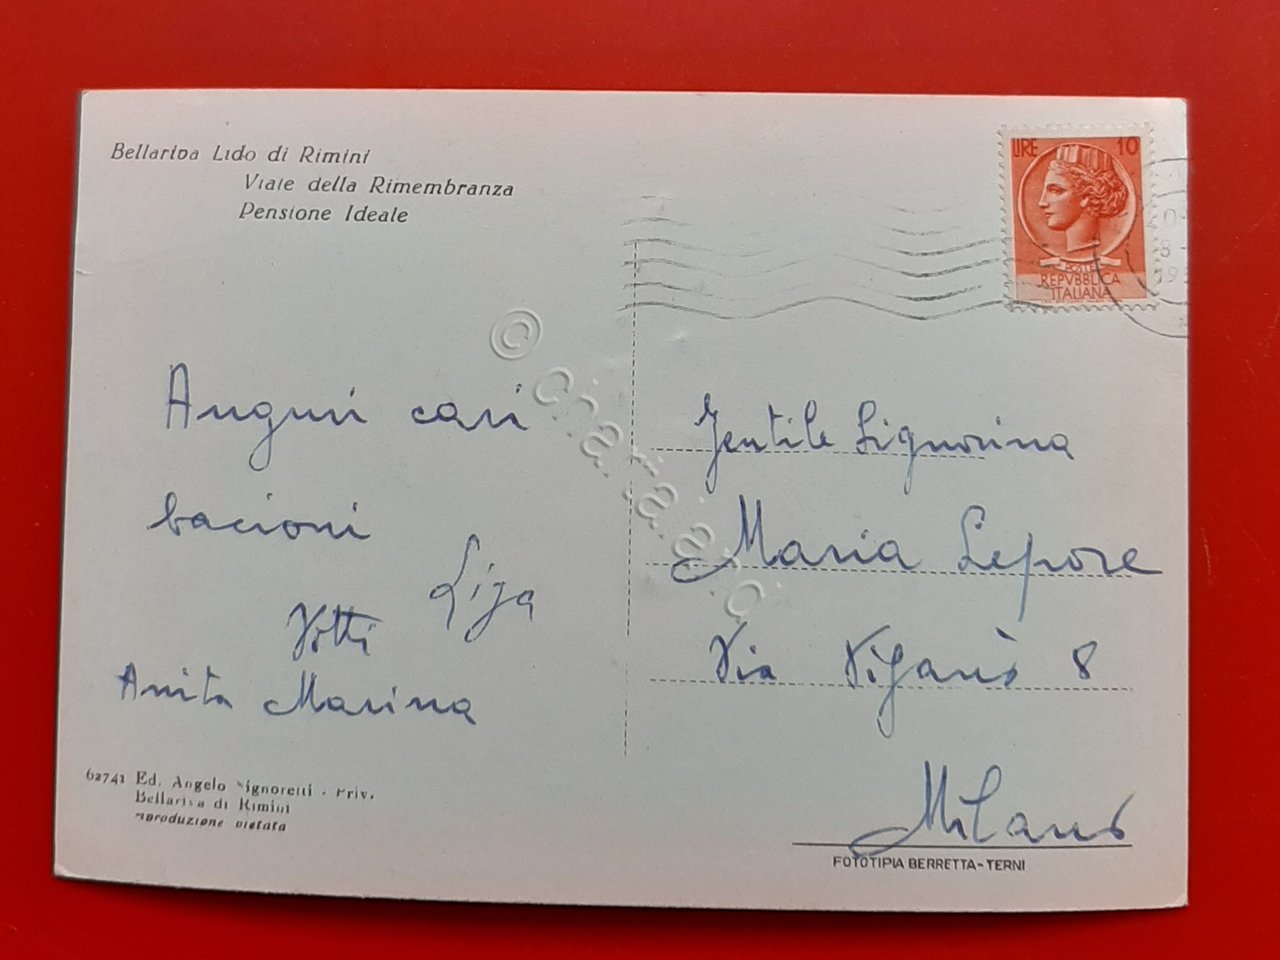 Bellariva Lido di Rimini
Viale della Rimembranza
Pensione Ideale
LIRE 10
POSTE
REPVBBLICA
ITALIANA
Auguri cari
bacioni
Liza
Anita Marina
62741 Ed. Angelo Signoretti - Priv.
Bellariva di Rimini
riproduzione vietata
Gentile Signorina
Maria Lepore
Via Viganò 8
Milano
FOTOTIPIA BERRETTA-TERNI